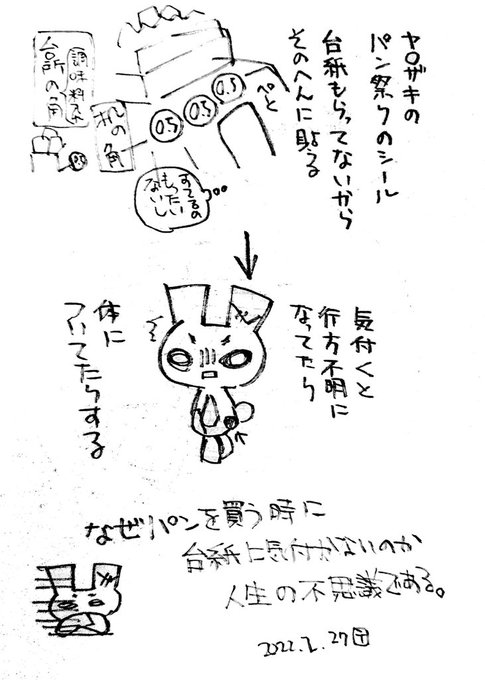 ヤ○ザキの
パン祭りのシール
台紙もらってないから
そのへんに貼る
ぺと
0.5
0.5
0.5
机の角
調味料入れ
台所の角
0.5
すてるの
もったい
ないし
気付くと
行方不明に
なってたら
体に
ついてたらする
なぜパンを買う時に
台紙に気付かないのか
人生の不思議である。